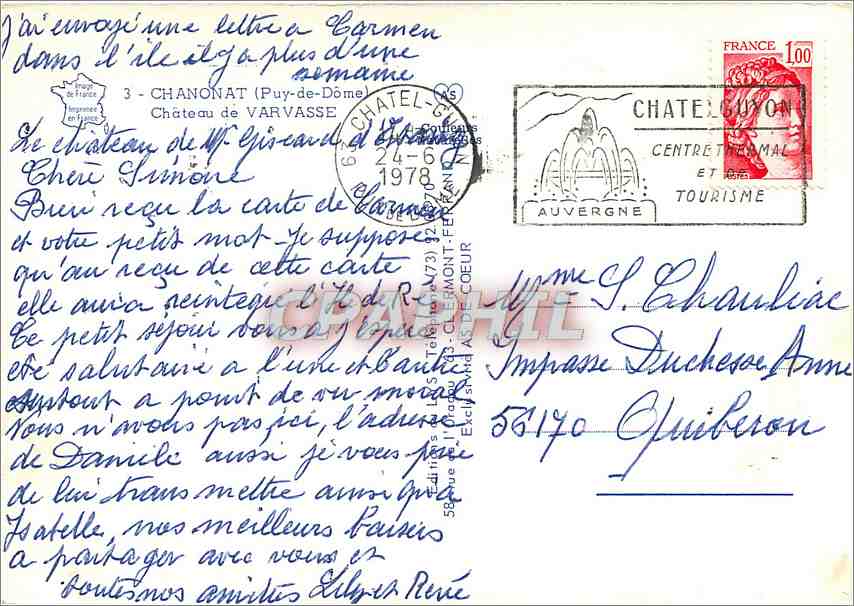 J'ai envoyé une lettre a Carmen
dans l'ile il y a plus d'une
semaine
Image
de France
Imprimée
en France
3 - CHANONAT (Puy-de-Dôme)
Château de VARVASSE
AS
Le château de Mr Giscard d'Estaing
Chère Simone
Bien reçu la carte de Carmen
et votre petit mot - Je suppose
qu'au reçu de cette carte
elle aura reintégré l'Ile de Ré
Ce petit séjour vous a j'espère
été salutaire a l'une et l'autre
surtout a point de vue moral
Nous n'avons pas ici, l'adresse
de Daniele aussi je vous prie
de lui transmettre ainsi qu'a
Isabelle, nos meilleurs baisers
a partager avec vous et
toutes nos amitiés Lily et René
63 CHATEL-GUYON
24-6
1978
PUY DE DOME
CHATELGUYON
CENTRE THERMAL
ET DE
TOURISME
AUVERGNE
FRANCE 1,00
58, rue de l'Oradou - 63 - CLERMONT-FERRAND
Exclusivité AS DE COEUR
CPASHIL
Mme S. Chauliac
Impasse Duchesse Anne
56170 Quiberon